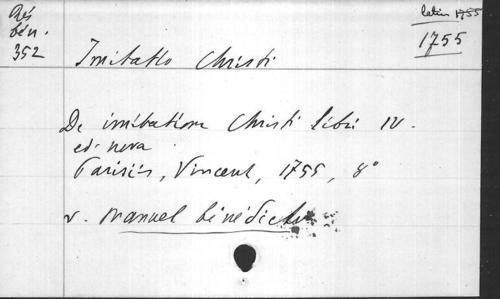 Rés
bén.
352
latin 1755
1755
Imitatio Christi
De imitatione Christi libri IV.
ed. nova
Parisiis, Vincent, 1755, 8°
v. Manuel bénédictin